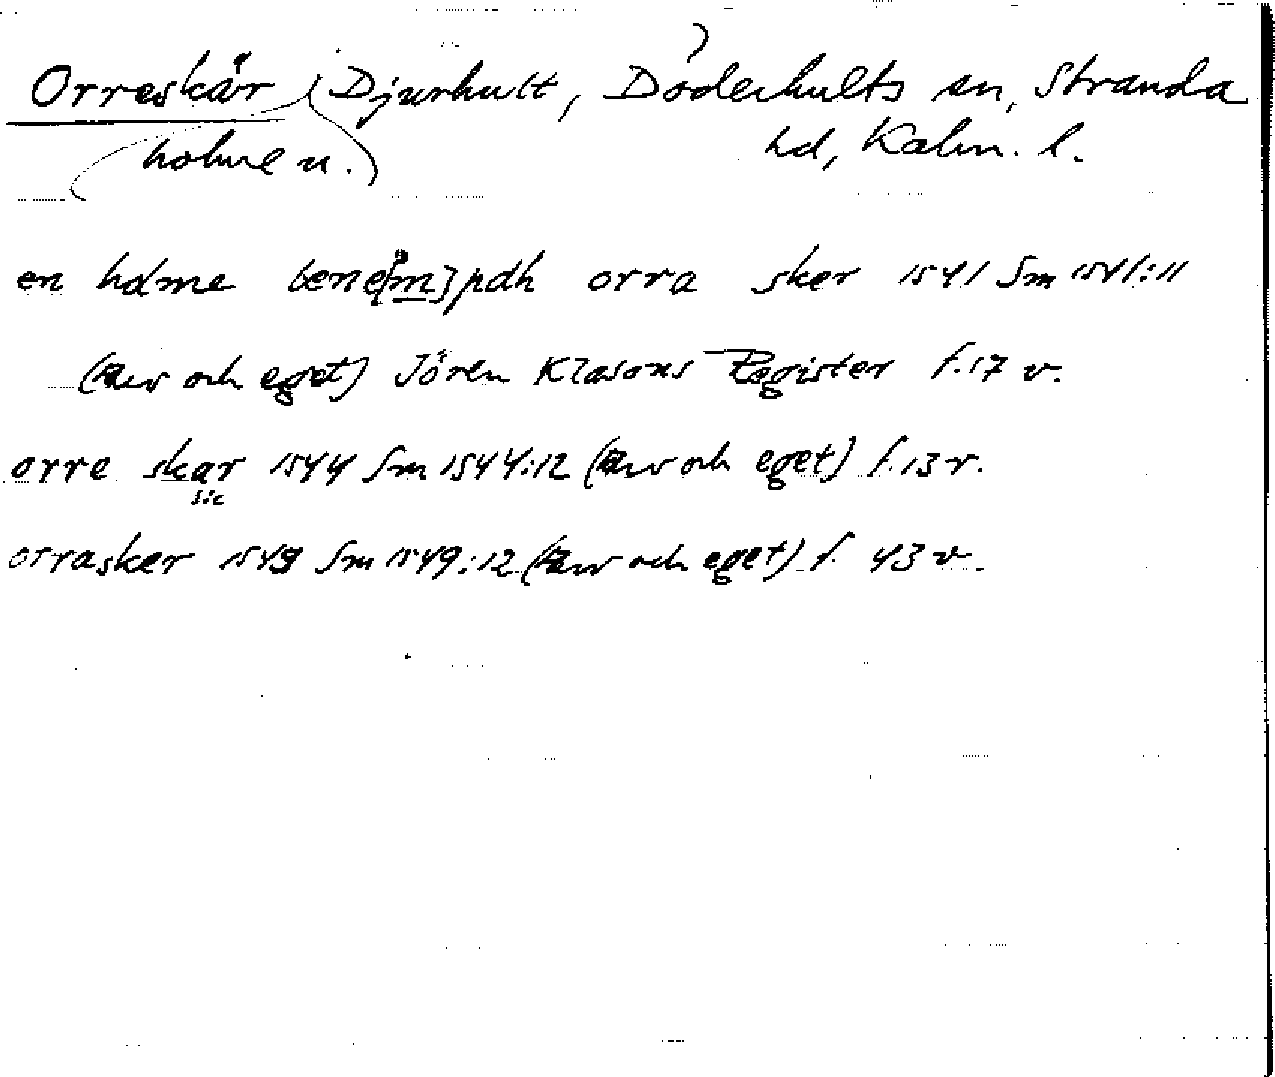 Orreskär Djurhult, Döderhults sn, Stranda
holme u. hd, Kalm. l.
en holme bene[m]pdh orra sker 1541 Sm 1541:11
(Arv och eget) Jören Klasons Register f. 17 v.
orre skar 1544 Sm 1544:12 (Arv och eget) f. 13 r.
sic
orrasker 1549 Sm 1549:12 (Arv och eget) f. 43 v.